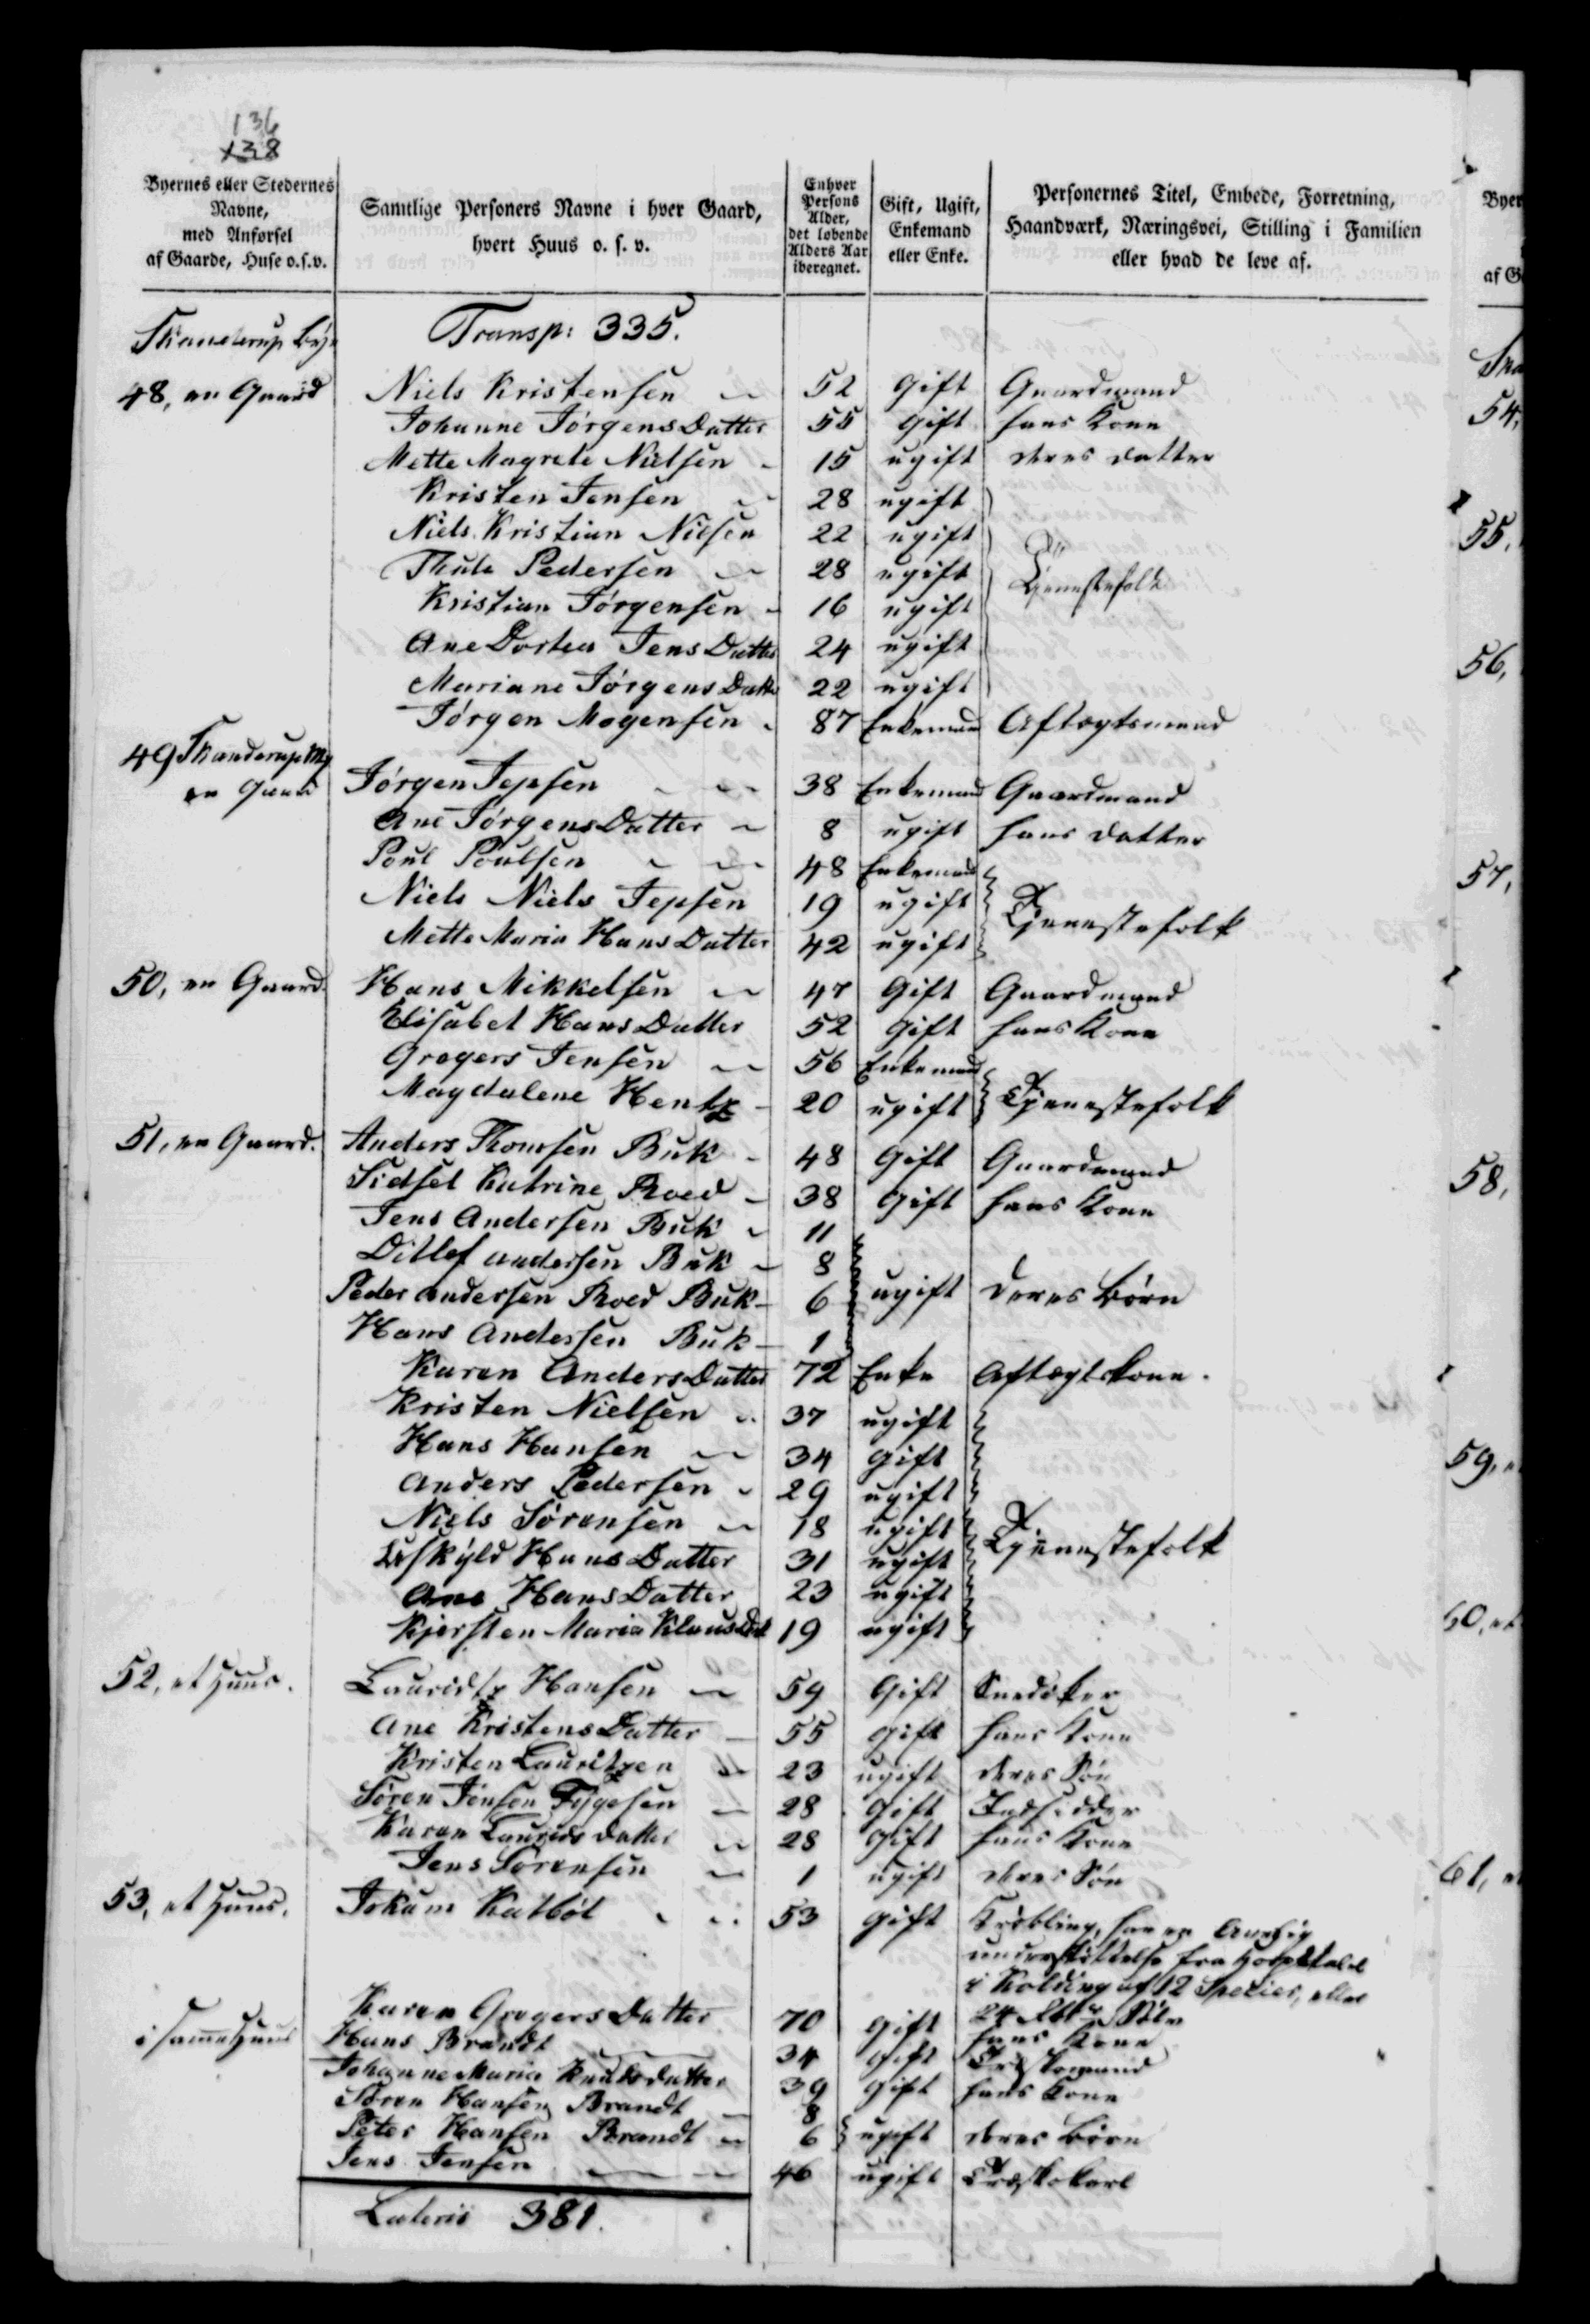 136
138
Byernes eller Stedernes Navne, med Anførsel af Gaarde, Huse o.s.v. | Samtlige Personers Navne i hver Gaard, hvert Huus o. s. v. | Enhver Persons Alder, det løbende Alders Aar iberegnet. | Gift, Ugift, Enkemand eller Enke. | Personernes Titel, Embede, Forretning, Haandværk, Næringsvei, Stilling i Familien eller hvad de leve af.
Skanderup By Transp: 335.
48, en Gaard Niels Kristensen 52 Gift Gaardmand
Johanne JørgensDatter 55 gift hans Kone
Mette Magrete Nielsen 15 ugift deres datter
Kristen Jensen 28 ugift
Niels Kristian Nielsen 22 ugift
Thule Pedersen 28 ugift Tjenestefolk
Kristian Jørgensen 16 ugift
Ane Dortea JensDatter 24 ugift
Mariane JørgensDatter 22 ugift
Jørgen Mogensen 87 Enkemand Aftægtsmand
49 Skanderup
en Gaard Jørgen Jepsen 38 Enkemand Gaardmand
Ane JørgensDatter 8 ugift hans datter
Poul Poulsen 48 Enkemand
Niels Niels Jepsen 19 ugift Tjenestefolk
Mette Maria HansDatter 42 ugift
50, en Gaard. Hans Mikkelsen 47 Gift Gaardmand
Elisabet HansDatter 52 Gift hans Kone
Gregers Jensen 56 Enkemand
Magdalene Hentz 20 ugift Tjenestefolk
51, en Gaard. Anders Thomsen Buk 48 Gift Gaardmand
Sidsel Katrine Roed 38 Gift hans Kone
Jens Andersen Buk 11
Ditlef Andersen Buk 8
Peder Andersen Roed Buk 6 ugift deres Børn
Hans Andersen Buk 1
Karen AndersDatter 72 Enke Aftægtskone.
Kristen Nielsen 37 ugift
Hans Hansen 34 gift
Anders Pedersen 29 ugift
Niels Sørensen 18 ugift Tjenestefolk
HansDatter 31 ugift
Ane HansDatter 23 ugift
Kjersten Maria KlausDat 19 ugift
52, et Huus. Lauridtz Hansen 59 Gift Snedker
Ane KristensDatter 55 gift hans Kone
Kristen Lauritzen 23 ugift deres Søn
Søren Jensen Tygesen 28 Gift Indsidder
Karen Laurids datter 28 gift hans Kone
Jens Sørensen 1 ugift deres Søn
53, et Huus. Jokum Katbøl 53 gift Krøbling, har en Aarlig
understøttelse fra Hospitalet
i Kolding af 12 Species, eller
24 Sølv
Karen GregersDatter 70 gift hans Kone
i samme Huus Hans Brandt 34 gift Træskomand
Johanne Maria Knudsdatter 39 gift hans Kone
Søren Hansen Brandt 8
Peter Hansen Brandt 6 ugift deres Børn
Jens Jensen 46 ugift Træskokarl
Lateris 381.
54,
55,
56,
57,
58,
59,
60, et
61,